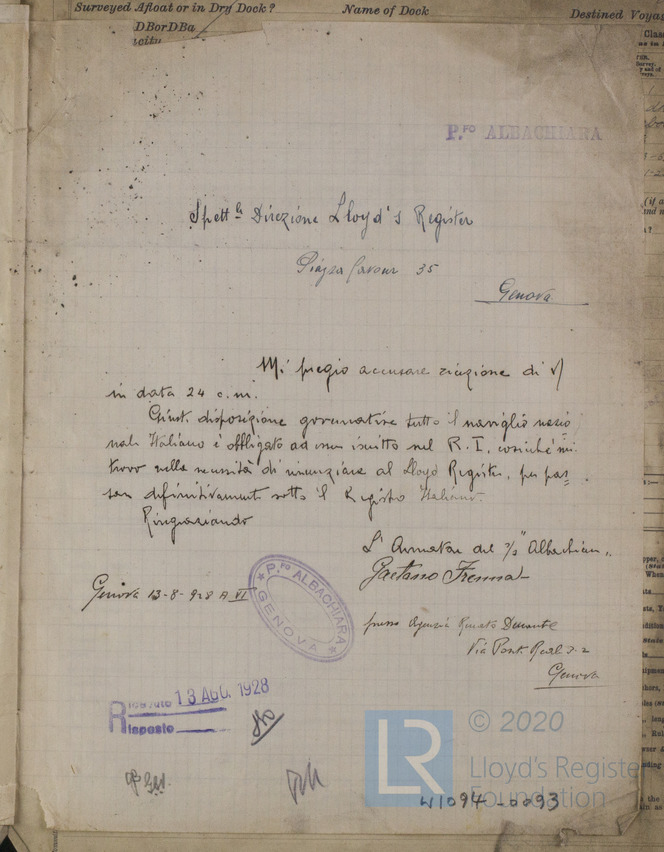 Surveyed Afloat or in Dry Dock?
Name of Dock
Destined Voya
DBorDBa
P.FO ALBACHIARA
Spett.le Direzione Lloyd's Register
Piazza Cavour 35
Genova
Mi pregio accusare ricezione di V/
in data 24 c.m.
Giust. disposizione governative tutto il naviglio nazio
nale Italiano è obbligato ad esser iscritto nel R.I. cosichè mi
trovo nella necessità di rinunziare al Lloyd Register, per pas=
sare definitivamente sotto il Registro Italiano.
Ringraziando
L'Armatore del "Albachiara
Gaetano
Genova 13-8-928 A VI
P.FO ALBACHIARA
GENOVA
presso Agenzia Renato
Via Ponte Reale 3.2
Genova
Ricevuto 13 AGO. 1928
Risposto
LR
© 2020
Lloyd's Register
Foundation
W1094-0093